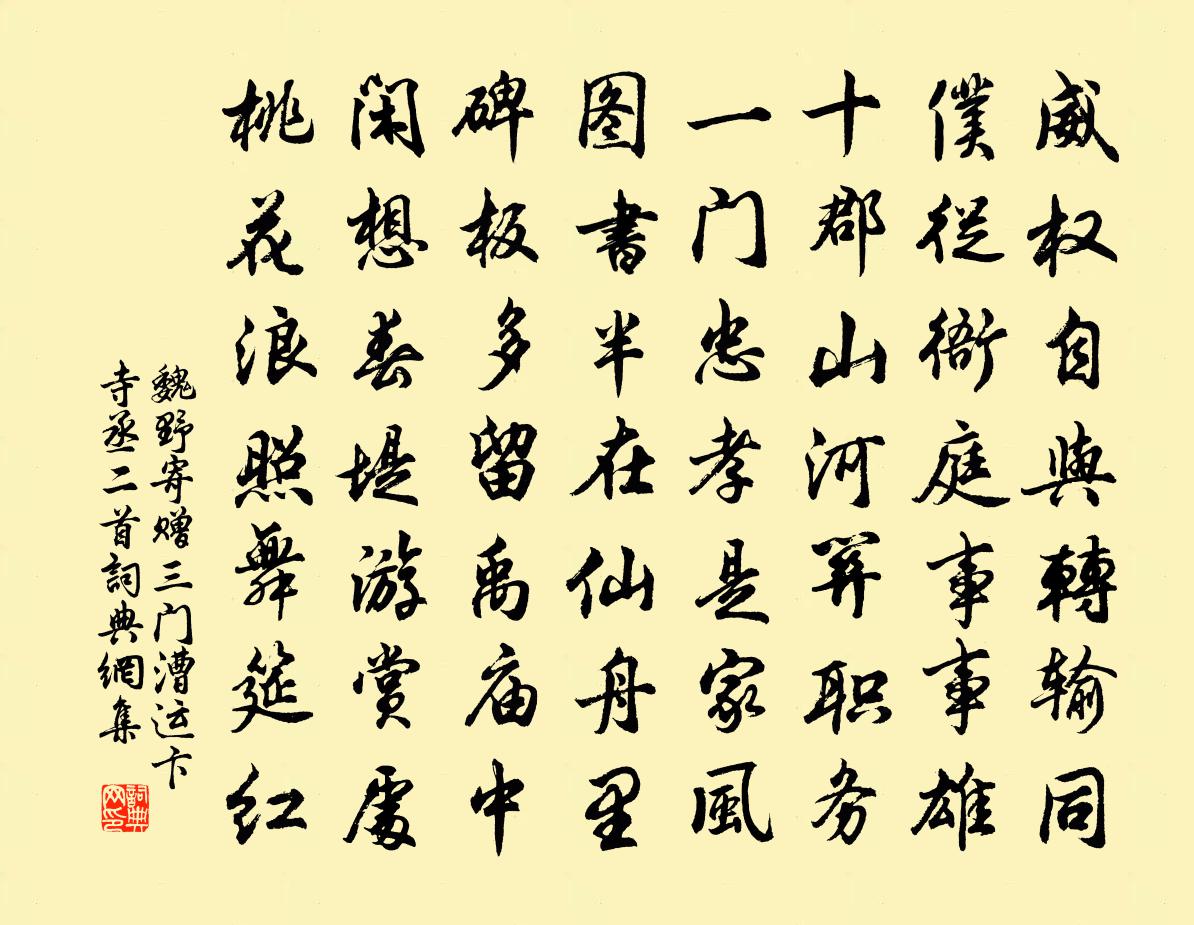 威权自與轉输同
僕從衙庭事事雄
十郡山河算职务
一门忠孝是家風
图書半在仙舟里
碑板多留禹庙中
闲想春堤游赏處
桃花浪照舞筵红
魏野寄赠三门漕运卞
寺丞二首詞典網集
詞典
网印